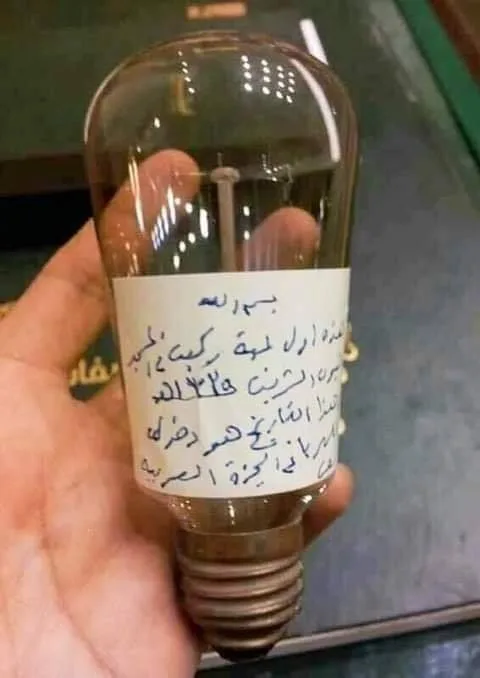 بسم الله
هذه أول لمبة ركبت في المسجد
النبوي الشريف ١٣٢٥هـ
هذا التاريخ هو دخول
الكهرباء في الجزيرة العربية